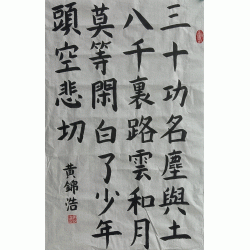 三十功名塵與土
八千裏路雲和月
莫等閑白了少年
頭空悲切
黃錦浩